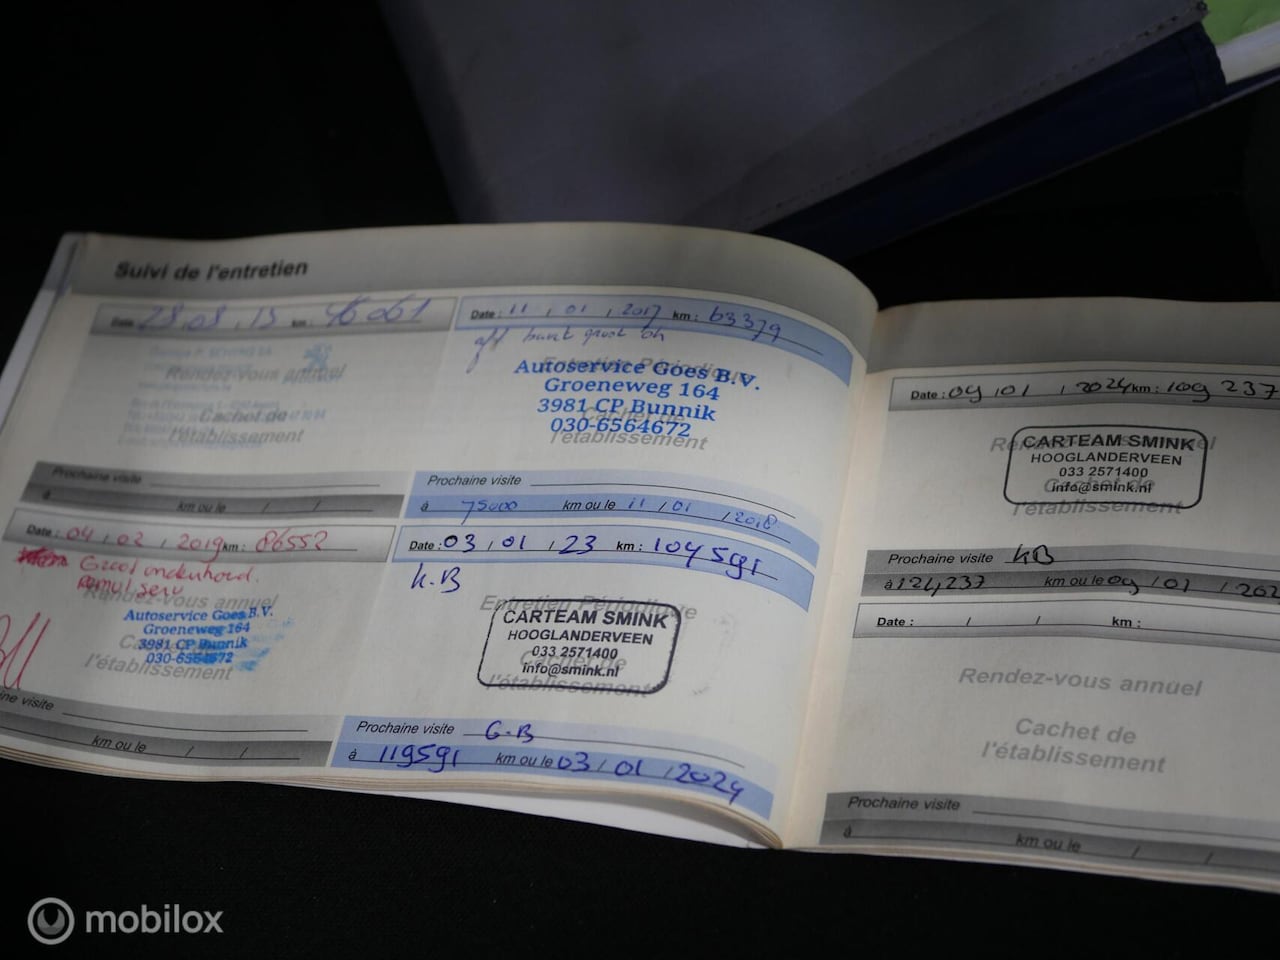 Suivi de l'entretien
Date : 28 , 08 , 13 km : 46061
Rendez-vous annuel
Cachet de
l'établissement
Prochaine visite
à km ou le / /
Date : 11 / 01 / 2017 km : 63379
beurt groot
Entretien Périodique
Autoservice Goes B.V.
Groeneweg 164
3981 CP Bunnik
Cachet de
030-6564672
l'établissement
Prochaine visite
à 75000 km ou le 11 / 01 / 2018
Date : 04 / 02 / 2019 km : 86552
Groot onderhoud.
Rendez-vous annuel
Autoservice Goes B.V.
Groeneweg 164
3981 CP Bunnik
Cachet de
030-6564672
l'établissement
ine visite
km ou le / /
Date : 03 / 01 / 23 km : 104591
K.B
Entretien Périodique
CARTEAM SMINK
HOOGLANDERVEEN
033 2571400
Cachet de
info@smink.nl
l'établissement
Prochaine visite G.B
à 119591 km ou le 03 / 01 / 2024
Date : 09 / 01 / 2024 km : 109 237
Rendez-vous annuel
CARTEAM SMINK
HOOGLANDERVEEN
033 2571400
Cachet de
info@smink.nl
l'établissement
Prochaine visite KB
à 124,237 km ou le 09 / 01 / 202
Date : / / km :
Rendez-vous annuel
Cachet de
l'établissement
Prochaine visite
à km ou le / /
mobilox